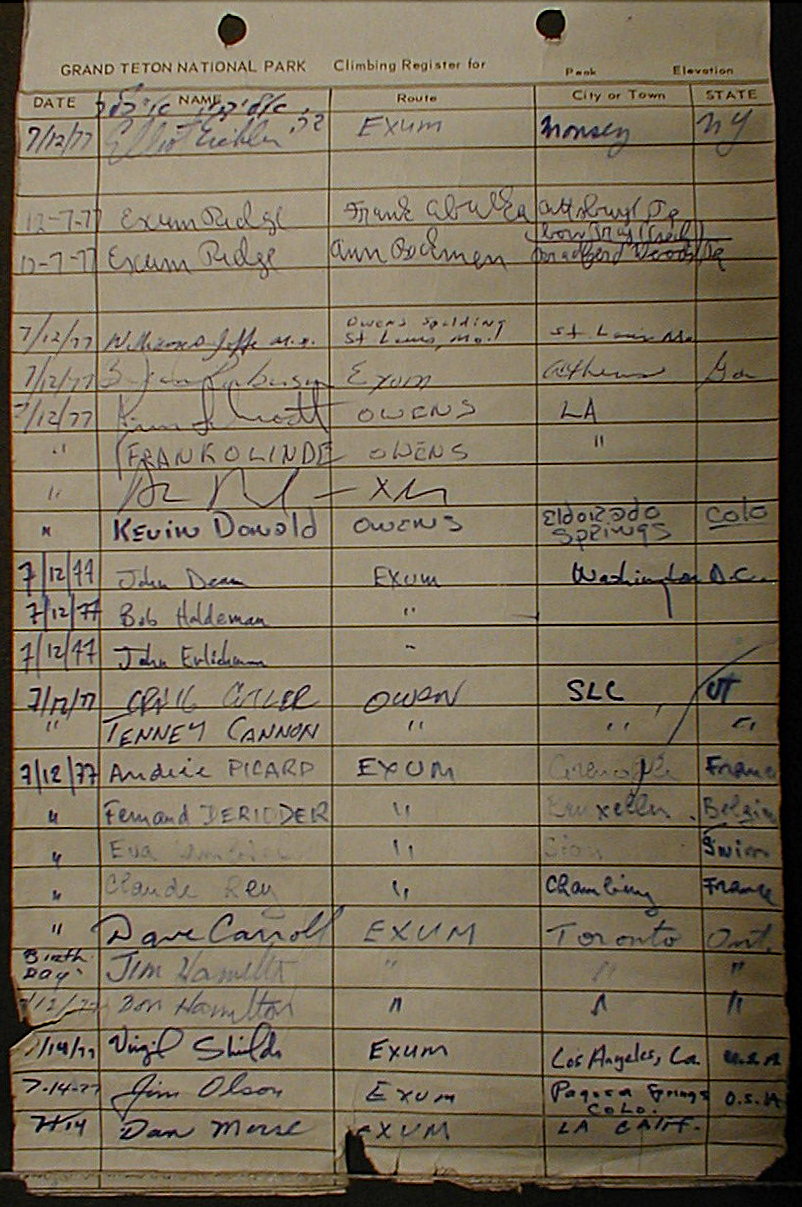 GRAND TETON NATIONAL PARK Climbing Register for
Peak Elevation
DATE NAME Route City or Town STATE
7/12/77 Elliot Eichler EXUM Monsey NY
12-7-77 Exum Ridge Frank
12-7-77 Exum Ridge Ann Bradford Woods Pa
7/12/77 Owens Spalding St Louis, Mo. St Louis Mo
7/12/77 Exum Athens Ga
7/12/77 OWENS LA
" FRANK OLINDE OWENS "
"
" KEVIN Donald OWENS Eldorado Springs Colo
7/12/77 John Dean EXUM Washington D.C.
7/12/77 Bob Haldeman "
7/12/77 John Erlichman "
7/12/77 CRAIG OWEN SLC UT
" TENNEY CANNON " " "
7/12/77 Andrée PICARD EXUM Grenoble France
" Fernand DERIDDER " Bruxelles Belgium
" Eva " Sion Swiss
" Claude Rey " France
" Dave Carroll EXUM Toronto Ont.
Birth Day Jim " " "
7/12/77 Don Hamilton " " "
7/14/77 Virgil Shields EXUM Los Angeles, Ca. U.S.A
7-14-77 Jim Olson Exum Pagosa Springs COLO. U.S.A
7/14 Dan Morse EXUM LA CALIF.